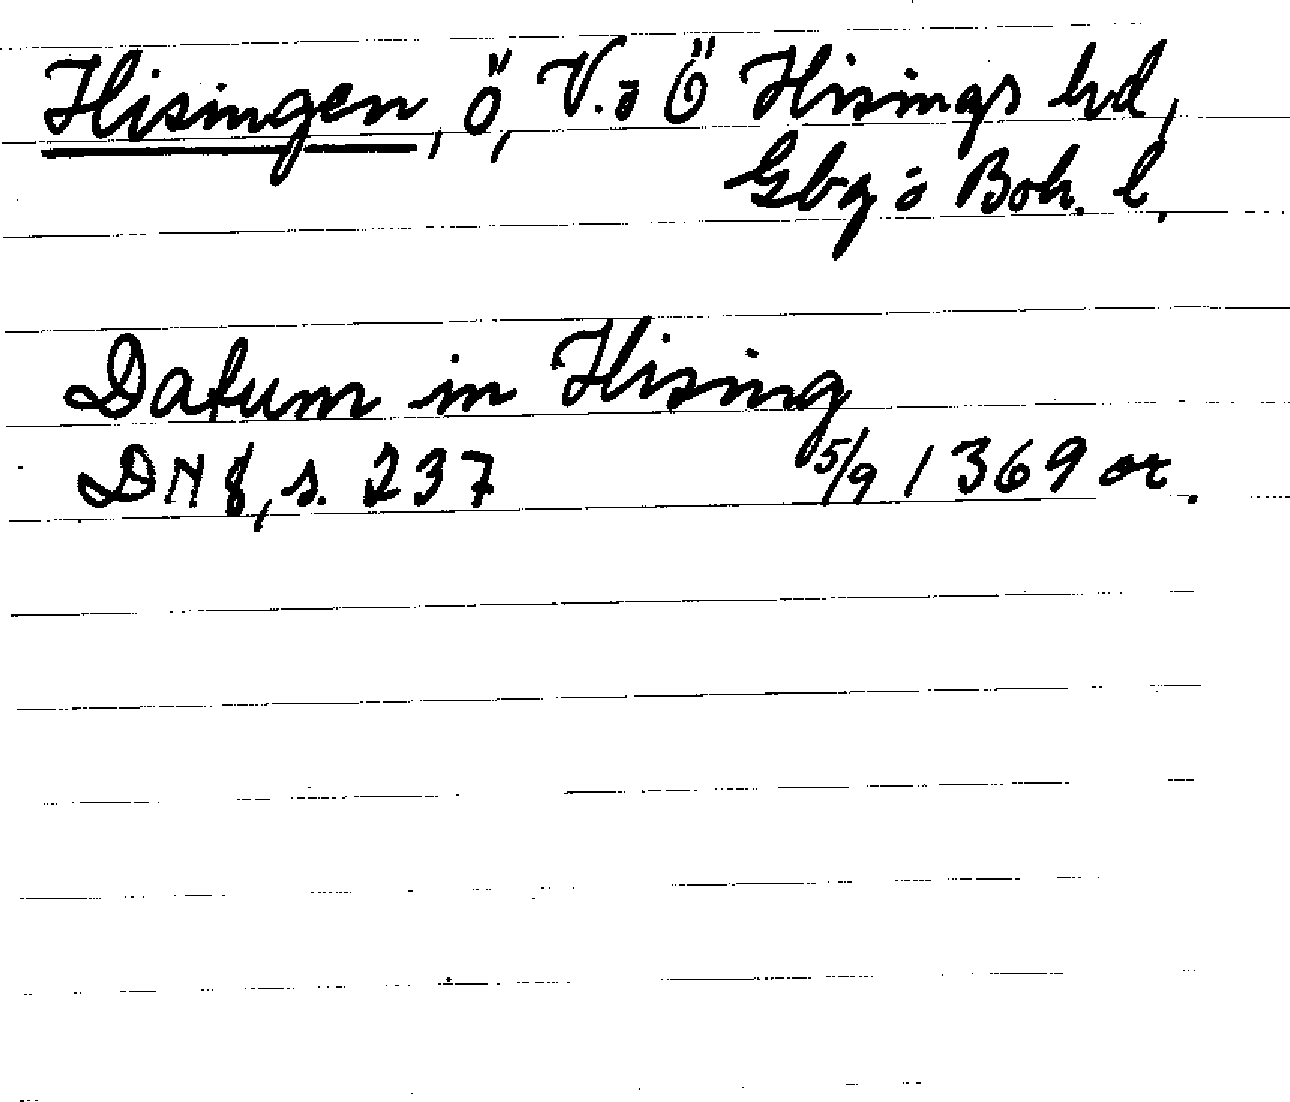 Hisingen, ö, V. o Ö Hisings hd,
Gbg o Boh. l.
Datum in Hising
DN 8, s. 237 5/9 1369 or.